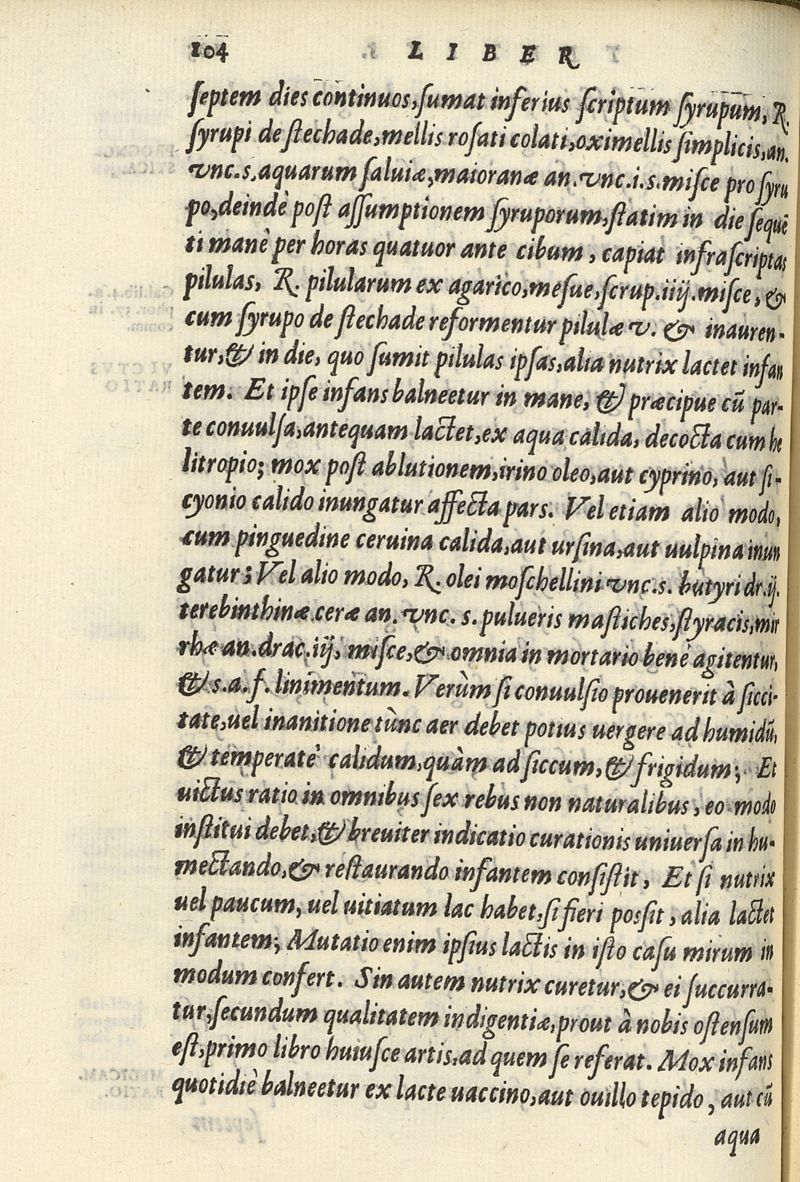 104 LIBER
septem dies continuos, sumat inferius scriptum syrupum, R.
syrupi de stechade, mellis rosati colati, oximellis simplicis, an.
vnc.s, aquarum saluiæ, maioranæ an. vnc.i.s. misce pro syru
po, deindè post assumptionem syruporum, statim in die sequē
ti manè per horas quatuor ante cibum, capiat infrascriptas
pilulas, R. pilularum ex agarico, mesue, scrup.iiij. misce, &
cum syrupo de stechade reformentur pilulæ v. & inauren-
tur, & in die, quo sumit pilulas ipsas, alia nutrix lactet infan
tem. Et ipse infans balneetur in mane, & præcipue cū par-
te conuulsa, antequam lactet, ex aqua calida, decocta cum he
litropio; mox post ablutionem, irino oleo, aut cyprino, aut si-
cyonio calido inungatur affecta pars. Vel etiam alio modo,
cum pinguedine ceruina calida, aut ursina, aut uulpina inun
gatur; Vel alio modo, R. olei moschellini vnc.s. butyri dr.ij.
terebinthinæ ceræ an. vnc. s. pulueris mastiches, styracis, mir
rhæ an. drac. iij, misce, & omnia in mortario benè agitentur,
& s.a.f. linimentum. Verùm si conuulsio prouenerit à sicci-
tate, uel inanitione tùnc aer debet potius uergere ad humidū,
& temperatè calidum, quàm ad siccum, & frigidum; Et
uictus ratio in omnibus sex rebus non naturalibus, eo modo
institui debet, & breuiter indicatio curationis uniuersa in hu-
mectando, & restaurando infantem consistit, Et si nutrix
uel paucum, uel uitiatum lac habet, si fieri possit, alia lactet
infantem; Mutatio enim ipsius lactis in isto casu mirum in
modum confert. Sin autem nutrix curetur, & ei succurra-
tur, secundum qualitatem indigentiæ, prout à nobis ostensum
est, primo libro huiusce artis, ad quem se referat. Mox infans
quotidiè balneetur ex lacte uaccino, aut ouillo tepido, aut cū
aqua